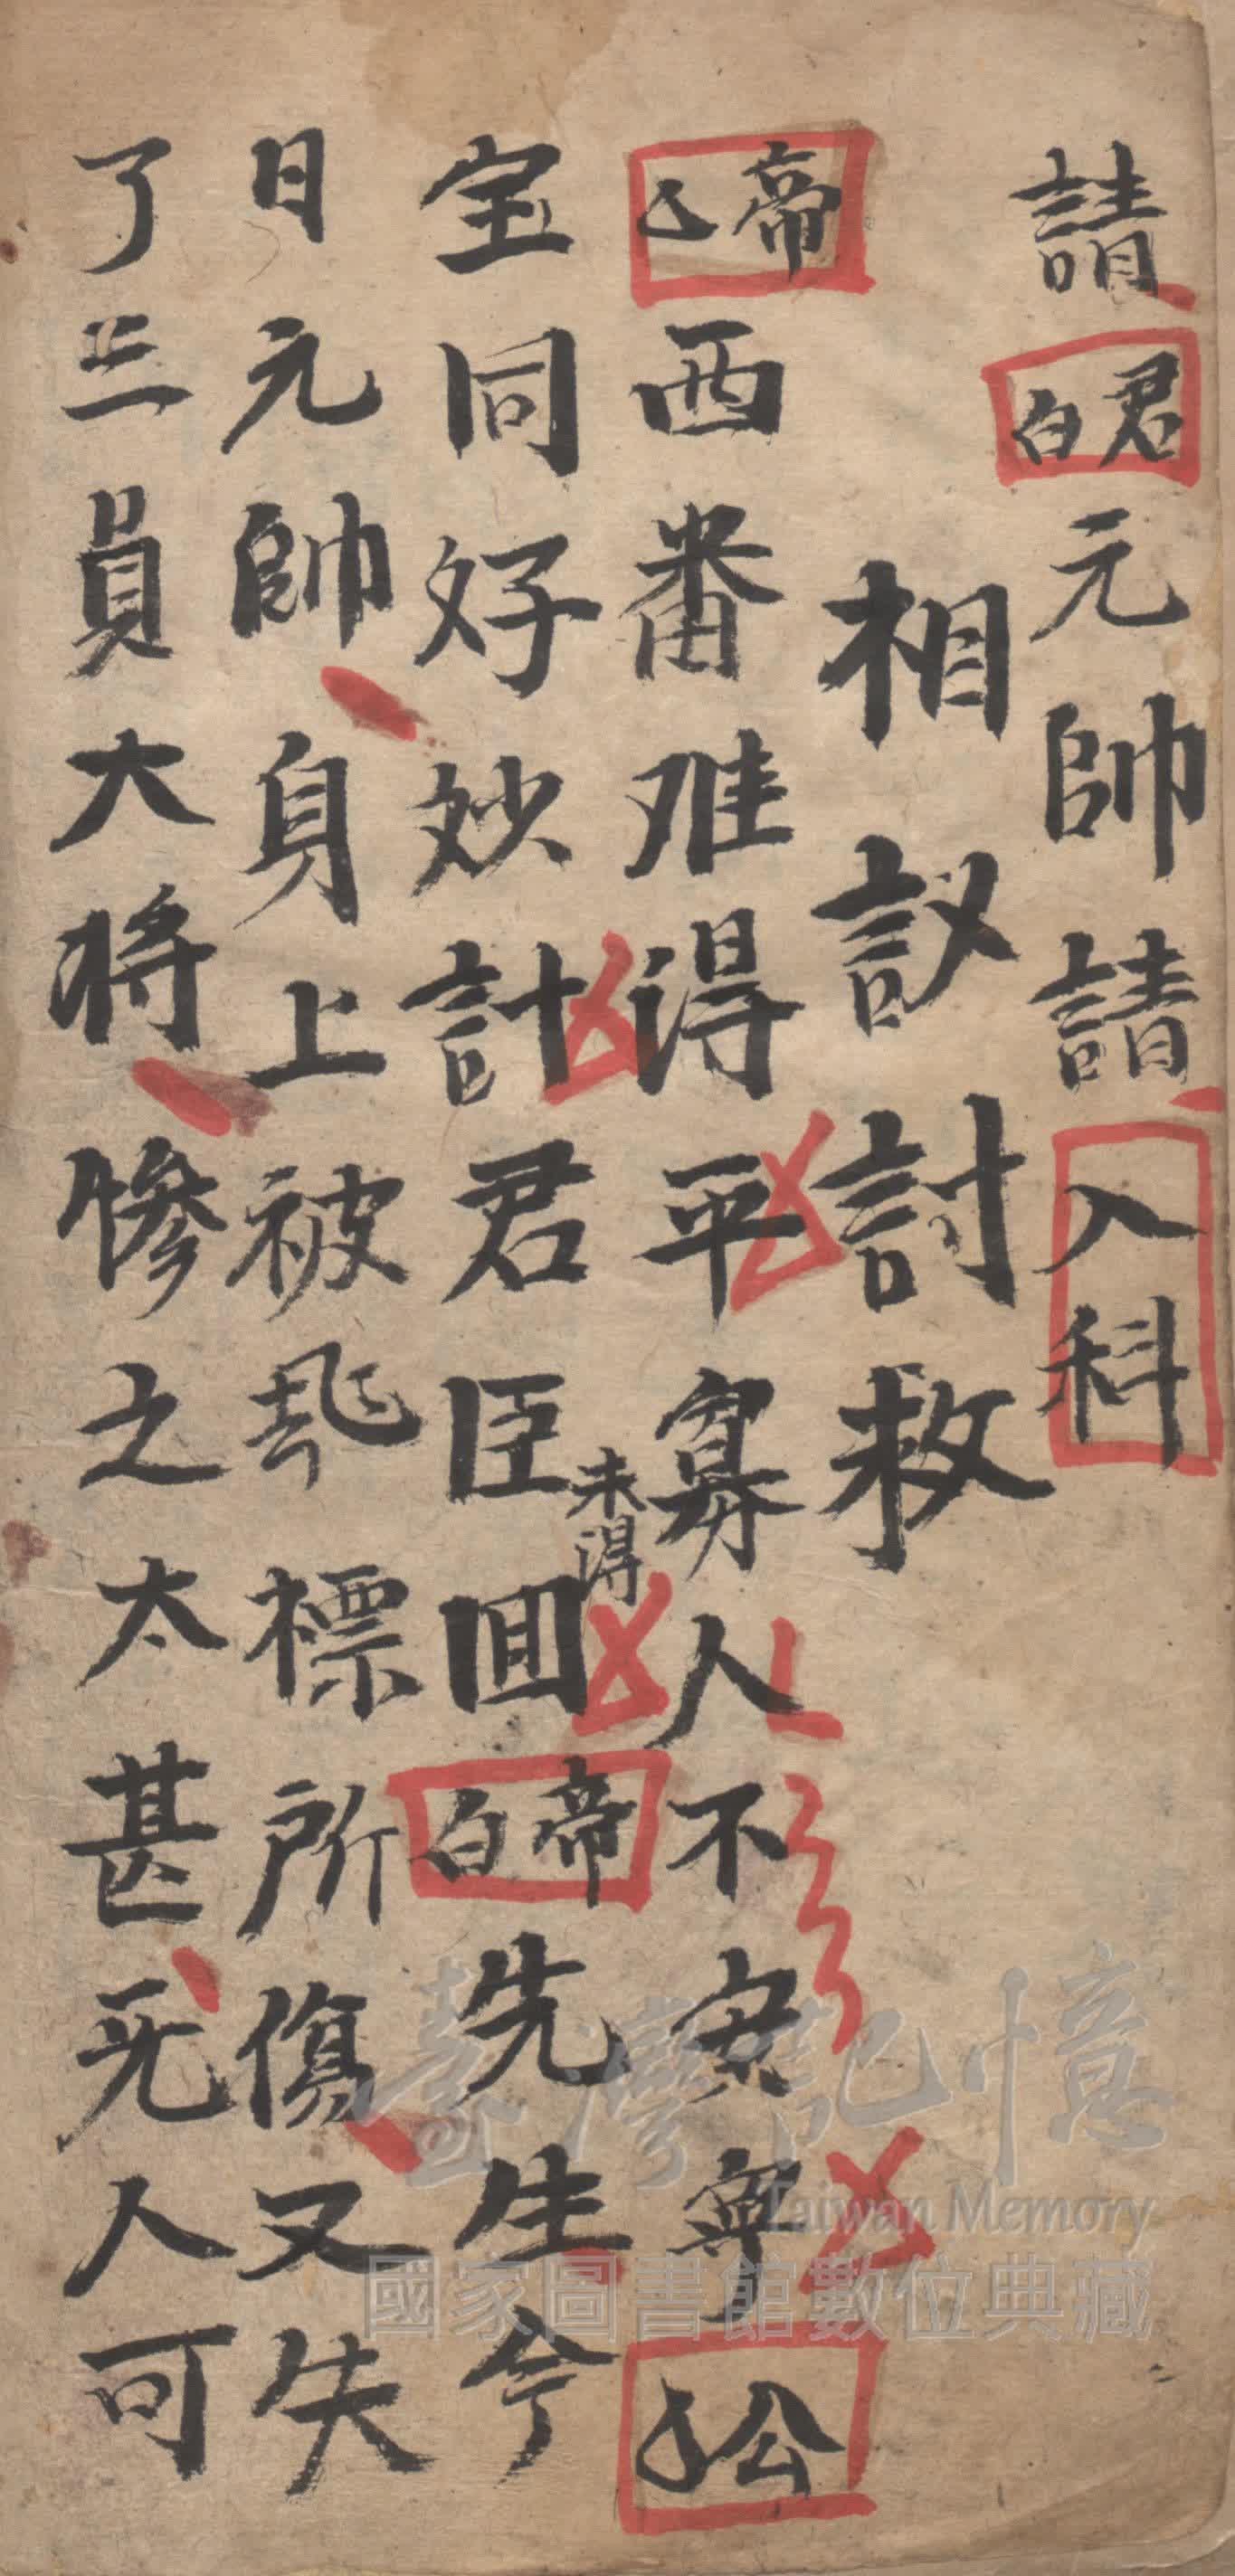 請君白元帥請入科
相議討救
帝西番难得平寡人不安寧公
宝同好妙計君臣未得回帝白先生今
日元帥身上被飛標所傷又失
了三員大将惨之太甚无人可
臺灣記憶
Taiwan Memory
國家圖書館數位典藏